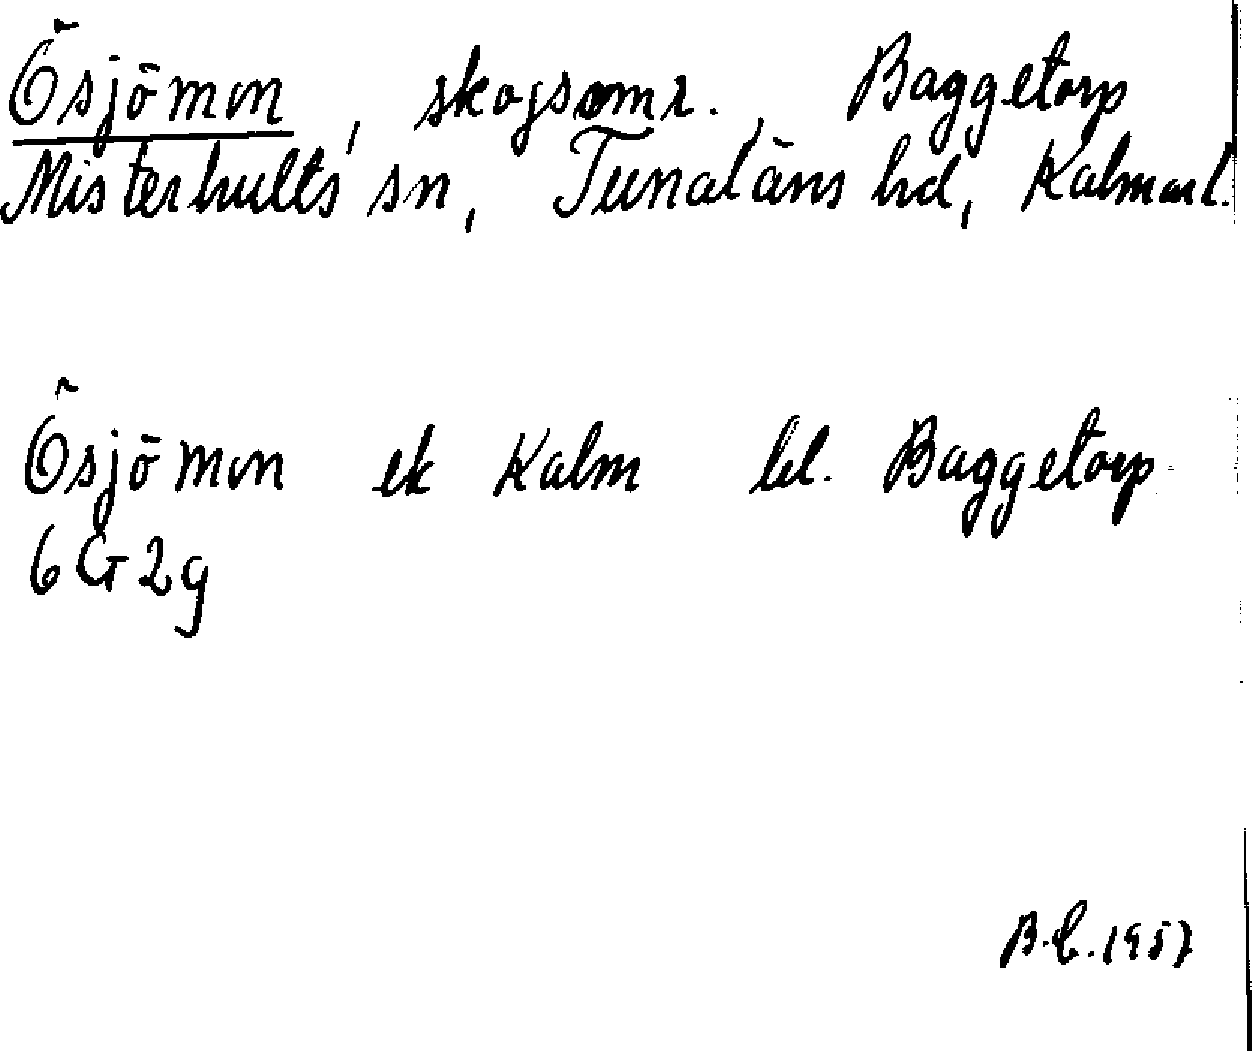 Ösjömon, skogsomr., Baggetorp
Misterhults sn, Tunaläns hd, Kalmarl.
Ösjömon ek Kalm bl. Baggetorp
6G2g
B.L. 1957